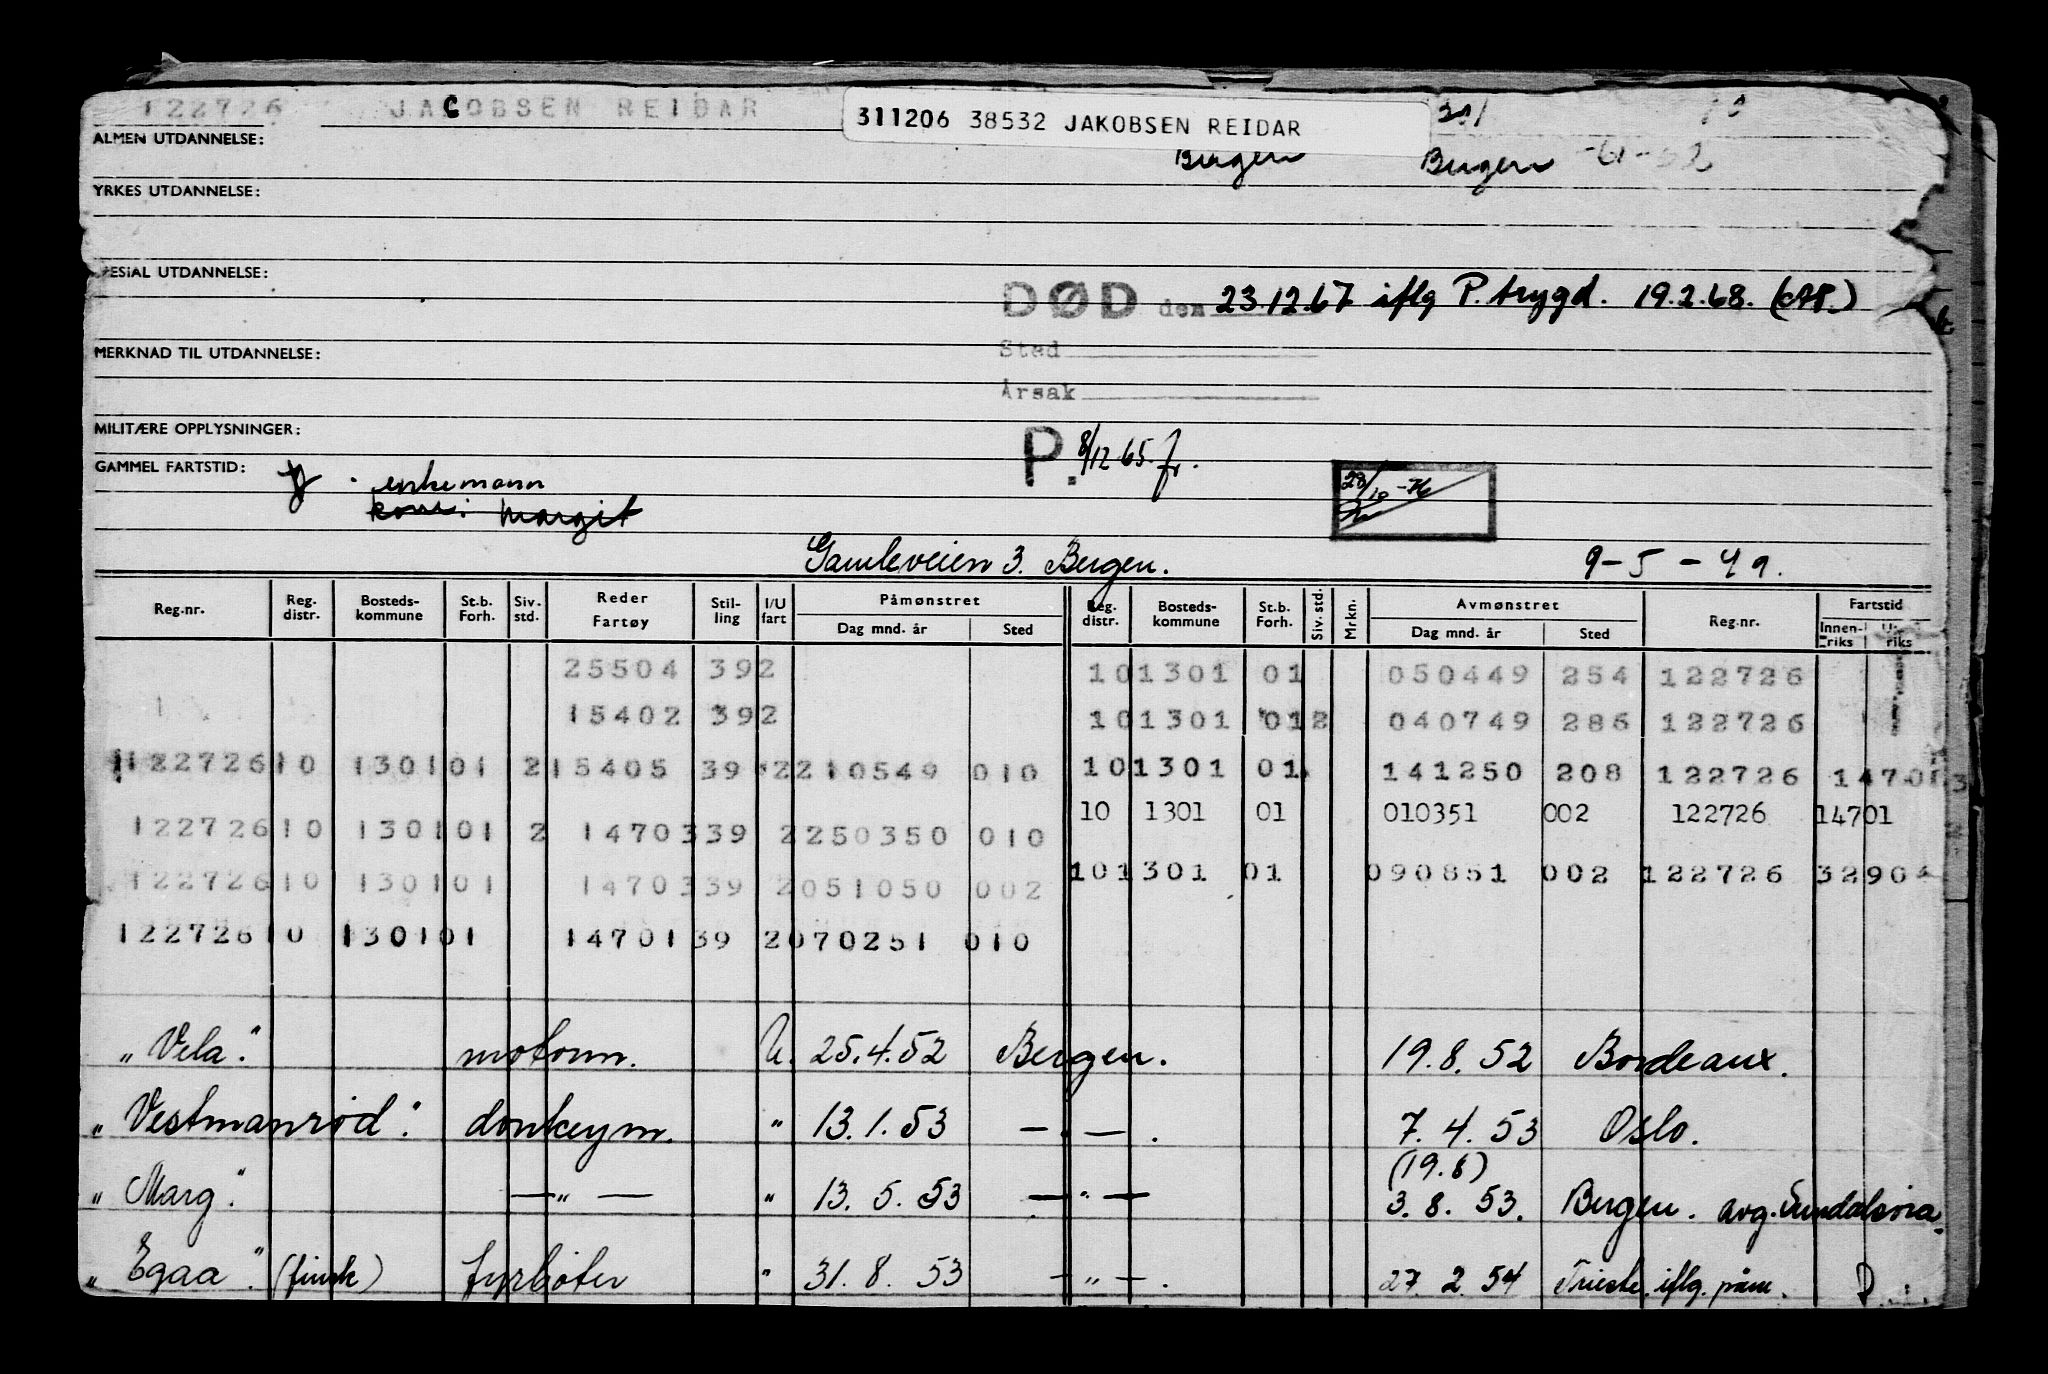 122726 JACOBSEN REIDAR
311206 38532 JAKOBSEN REIDAR
ALMEN UTDANNELSE:
Bergen Bergen
YRKES UTDANNELSE:
ESIAL UTDANNELSE:
DØD den 23.12.67 iflg P. trygd. 19.2.68.
MERKNAD TIL UTDANNELSE:
Sted
Årsak
MILITÆRE OPPLYSNINGER:
P. 8/12 65. fr.
GAMMEL FARTSTID:
enkemann
kone: Margit
28/10-76
Gamleveien 3. Bergen. 9-5-49.
Reg.nr. Reg. distr. Bosteds-kommune St.b. Forh. Siv. std. Reder Fartøy Stil-ling I/U fart Påmønstret Dag mnd. år Sted Reg. distr. Bosteds-kommune St.b. Forh. Siv. std. Mrkn. Avmønstret Dag mnd. år Sted Reg.nr. Fartstid Innen-riks riks
25504 392 10 1301 01 050449 254 122726
15402 392 10 1301 012 040749 286 122726
122726 10 1301 01 2 15405 39 2 210549 010 10 1301 01 141250 208 122726
10 1301 01 010351 002 122726 14701
122726 10 1301 01 2 14703 39 2 250350 010
10 1301 01 090851 002 122726 3290
122726 10 1301 01 14703 39 2 051050 002
122726 10 1301 01 14701 39 2 070251 010
"Vela". motorm. U. 25.4.52 Bergen. 19.8.52 Bordeaux.
"Vestmanrød". donkeym. " 13.1.53 — . — . 7.4.53 Oslo.
(19.6)
"Marg". — " — " 13.5.53 — " — 3.8.53. Bergen. avg. Sundalsøra.
"Egaa". (finsk) fyrbøter " 31.8.53 — " — . 27.2.54 Trieste. iflg. påm.